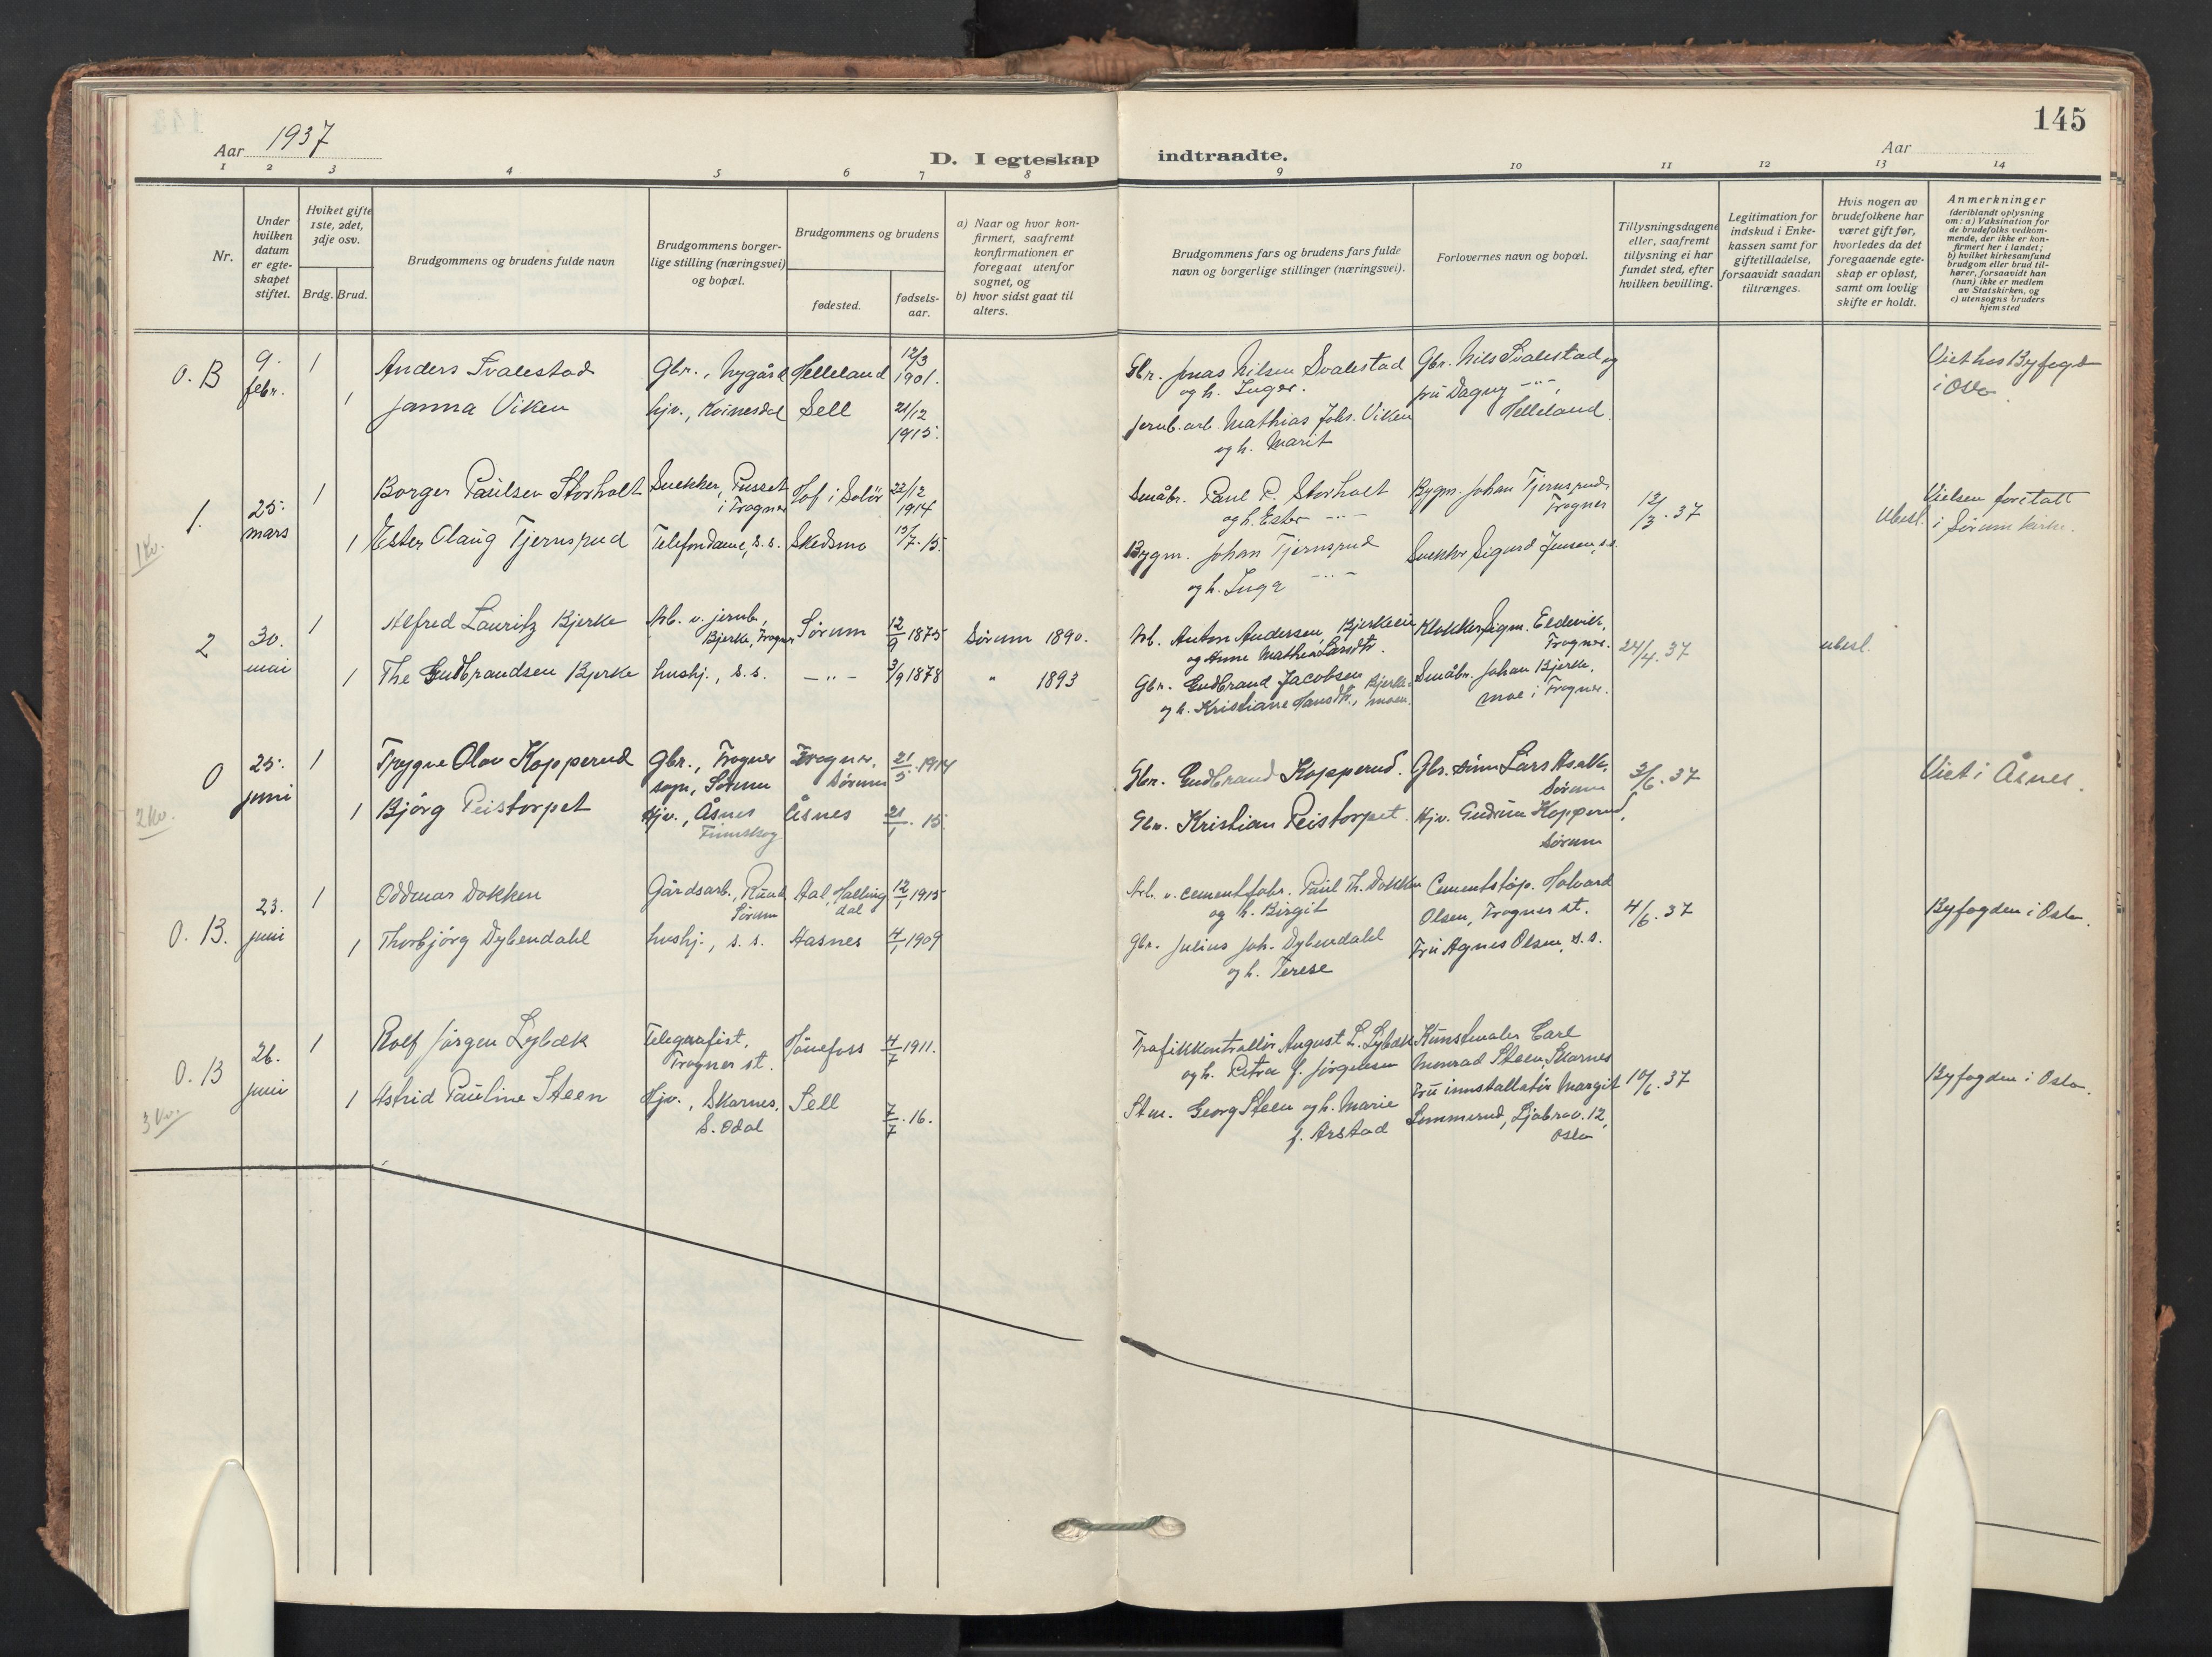 145
Aar 1937
D. I egteskap indtraadte.
Aar
1 2 3 4 5 6 7 8 9 10 11 12 13 14
Nr.
Under hvilken datum er egte-skapet stiftet.
Hvilket gifte 1ste, 2det, 3dje osv.
Brdg. Brud.
Brudgommens og brudens fulde navn
Brudgommens borger-lige stilling (næringsvei) og bopæl.
Brudgommens og brudens
fødested.
fødsels-aar.
a) Naar og hvor kon-firmert, saafremt konfirmationen er foregaat utenfor sognet, og
b) hvor sidst gaat til alters.
Brudgommens fars og brudens fars fulde navn og borgerlige stillinger (næringsvei).
Forlovernes navn og bopæl.
Tillysningsdagene eller, saafremt tillysning ei har fundet sted, efter hvilken bevilling.
Legitimation for indskud i Enke-kassen samt for giftetilladelse, forsaavidt saadan tiltrænges.
Hvis nogen av brudefolkene har været gift før, hvorledes da det foregaaende egte-skap er opløst, samt om lovlig skifte er holdt.
Anmerkninger
(deriblandt oplysning om: a) Vaksination for de brudefolks vedkom-mende, der ikke er kon-firmert her i landet; b) hvilket kirkesamfund brudgom eller brud til-hører, forsaavidt han (hun) ikke er medlem av Statskirken, og c) utensogns bruders hjemsted
O. B 9. febr. 1 Anders Svalestad Gbr., Nygård Helleland 12/3 1901. Gbr. Jonas Nilsen Svalestad og h. Inger. Gbr. Nils Svalestad og Viet hos Byfogd i Oslo
1 Janna Viken hjv., Kvinesdal Sell 21/12 1915. Jernb. arb. Mathias Johs. Viken og h. Marit fru Dagny -"-, Helleland.
1. 25. mars 1 Borger Paulsen Storholt Snekker, Pusset i Frogner Hof i Solør 22/12 1914 Småbr. Paul P. Storholt og h. Ester -"- Bygm. Johan Tjernsrud, Frogner 12/3. 37 Ubesl. Vielsen foretatt i Sørum kirke.
1 Ester Olaug Tjernsrud Telefondame, s.s. Skedsmo 15/7. 15. Bygm. Johan Tjernsrud og h. Inga -"- Snekker Sigurd Jensen, s.s.
1 kv.
2 30. mai 1 Alfred Lauritz Bjerke Arb. v. jernb., Bjerke, Frogner Sørum 12/9 1875 Sørum 1890. Arb. Anton Andersen, Bjerkeeie og Anne Mathea Larsdtr. Klokker Sigm. Eldevik, Frogner. 24/4. 37 ubesl.
1 Thea Gudbrandsen Bjerke hushj., s.s. -"- 3/9 1878 " 1893 Gbr. Gudbrand Jacobsen Bjerke og h. Kristiane Hansdtr., moen. Småbr. Johan Bjerke, moe i Frogner.
O 25. juni 1 Trygve Olav Kopperud Gbr., Frogner sogn, Sørum Frogner, Sørum 21/5. 1914 Gbr. Gudbrand Kopperud. Gbr. sønn Lars Asak, Sørum 3/6. 37 Viet i Åsnes.
1 Bjørg Peistorpet Hjv., Åsnes Finnskog Åsnes 21/1. 15. Gbr. Kristian Peistorpet. Hjv. Gudrun Kopperud, Sørum
2 kv.
O. B. 23. juni 1 Oddmar Dokken Gårdsarb., Ruud Sørum Aal, Hallingdal 12/1 1915 Arb. v. cementfabr. Paul Th. Dokken og h. Birgit Cementstøp. Halvard Olsen, Frogner st. 4/6. 37 Byfogden i Oslo.
1 Thorbjørg Dybendahl hushj., s.s. Aasnes 4/1 1909 Gbr. Julius Joh. Dybendahl og h. Terese Fru Agnes Olsen, s.s.
O. B 26. juni 1 Rolf Jørgen Lybæk Telegrafist, Frogner st. Hønefoss 4/7 1911. Trafikkontrollør August L. Lybæk og h. Petra f. Jørgensen Kunstmaler Carl Monrad Steen, Skarnes 10/6. 37 Byfogden i Oslo.
1 Astrid Pauline Steen Hjv., Skarnes, S. Odal Sell 7/7. 16. Stm. Georg Steen og h. Marie f. Arstad Fru innstallatør Margit Sommerud, Ljabrov. 12, Oslo
3 kv.